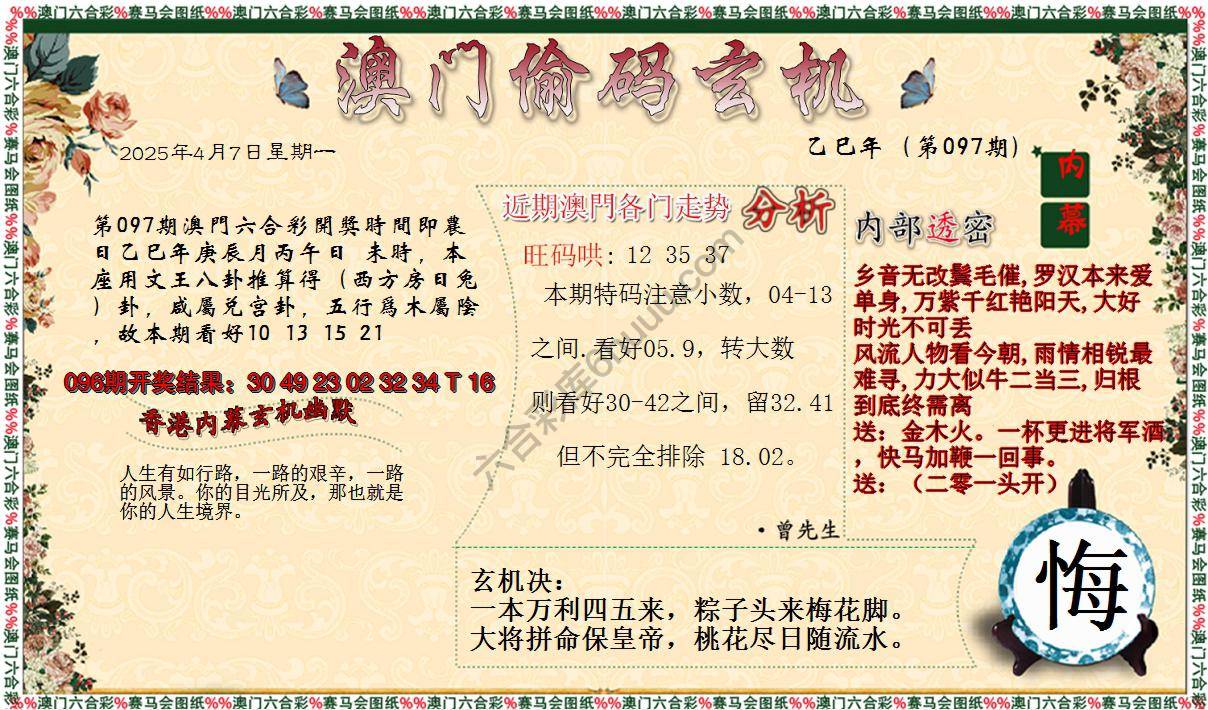 %%澳门六合彩%赛马会图纸%%澳门六合彩%赛马会图纸%%澳门六合彩%赛马会图纸%%澳门六合彩%赛马会图纸%%澳门六合彩%赛马会图纸%%澳门六合彩%赛马会图纸
澳门偷码玄机
2025年4月7日星期一
乙巳年（第097期）
内
幕
第097期澳門六合彩開獎時間即農
日乙巳年庚辰月丙午日 未時，本
座用文王八卦推算得（西方房日兔
）卦，咸屬兑宫卦，五行爲木屬陰
，故本期看好10 13 15 21
096期开奖结果：30 49 23 02 32 34 T 16
香港内幕玄机幽默
人生有如行路，一路的艰辛，一路
的风景。你的目光所及，那也就是
你的人生境界。
近期澳門各门走势 分析
旺码哄: 12 35 37
本期特码注意小数，04-13
之间.看好05.9，转大数
则看好30-42之间，留32.41
但不完全排除 18.02。
·曾先生
内部透密
乡音无改鬓毛催,罗汉本来爱
单身,万紫千红艳阳天,大好
时光不可丢
风流人物看今朝,雨情相锐最
难寻,力大似牛二当三,归根
到底终需离
送：金木火。一杯更进将军酒
，快马加鞭一回事。
送：（二零一头开）
玄机决：
一本万利四五来，粽子头来梅花脚。
大将拼命保皇帝，桃花尽日随流水。
悔
%%澳门六合彩%赛马会图纸%%澳门六合彩%赛马会图纸%%澳门六合彩%赛马会图纸%%澳门六合彩%赛马会图纸%%澳门六合彩%赛马会图纸%%澳门六合彩%赛马会图纸